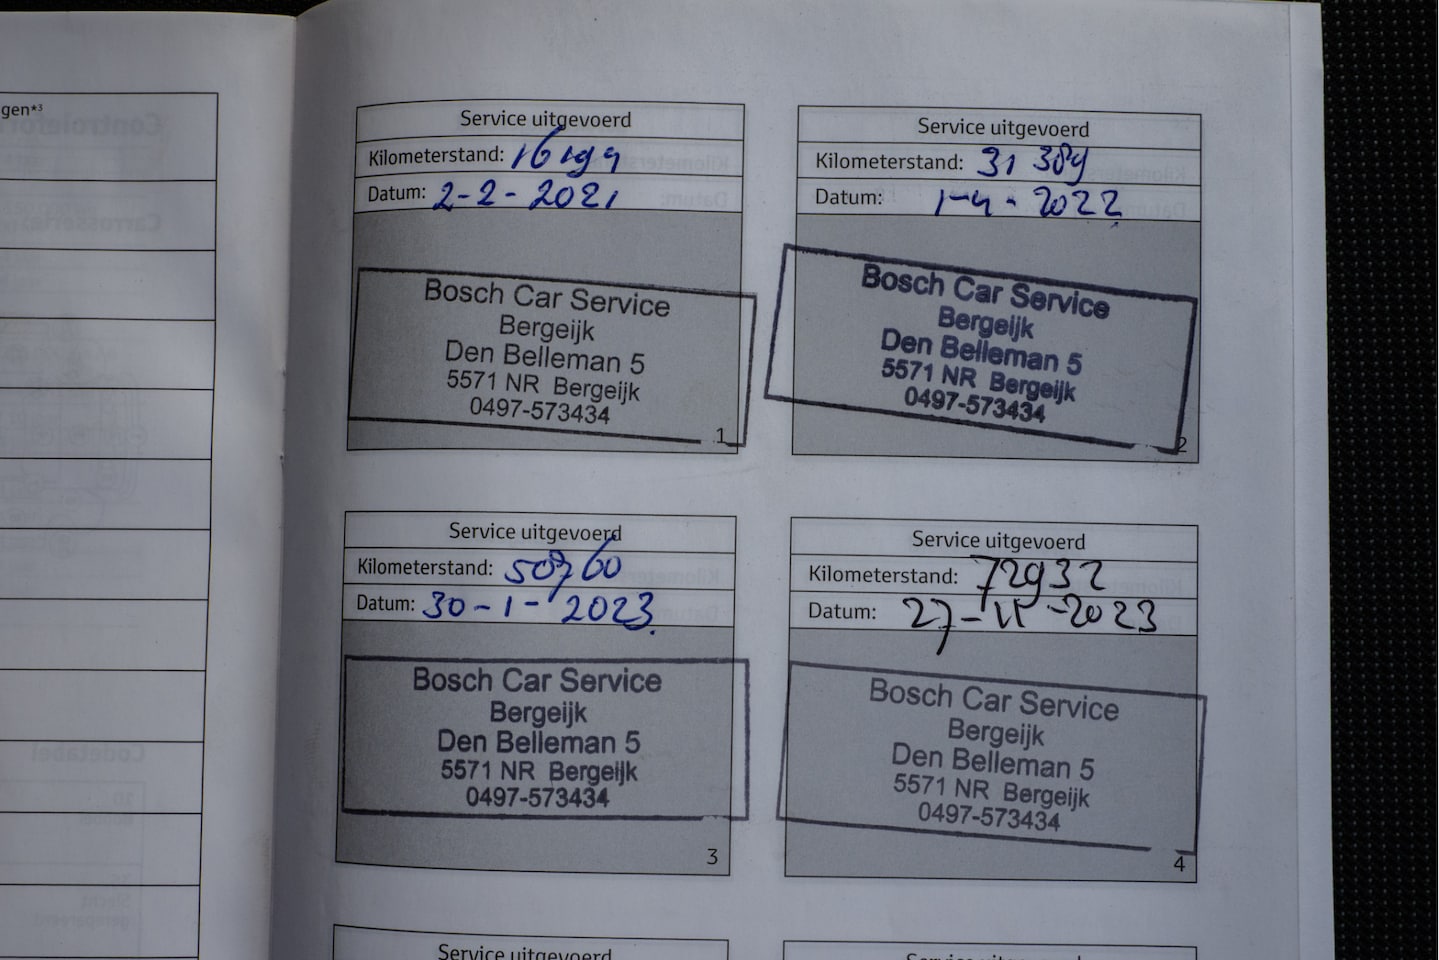 gen*³
Service uitgevoerd
Kilometerstand: 16194
Datum: 2-2-2021
Bosch Car Service
Bergeijk
Den Belleman 5
5571 NR Bergeijk
0497-573434
1
Service uitgevoerd
Kilometerstand: 31 389
Datum: 1-4-2022
Bosch Car Service
Bergeijk
Den Belleman 5
5571 NR Bergeijk
0497-573434
2
Service uitgevoerd
Kilometerstand: 50760
Datum: 30-1-2023
Bosch Car Service
Bergeijk
Den Belleman 5
5571 NR Bergeijk
0497-573434
3
Service uitgevoerd
Kilometerstand: 72932
Datum: 27-11-2023
Bosch Car Service
Bergeijk
Den Belleman 5
5571 NR Bergeijk
0497-573434
4
Service uitgevoerd
Service uitgevoerd